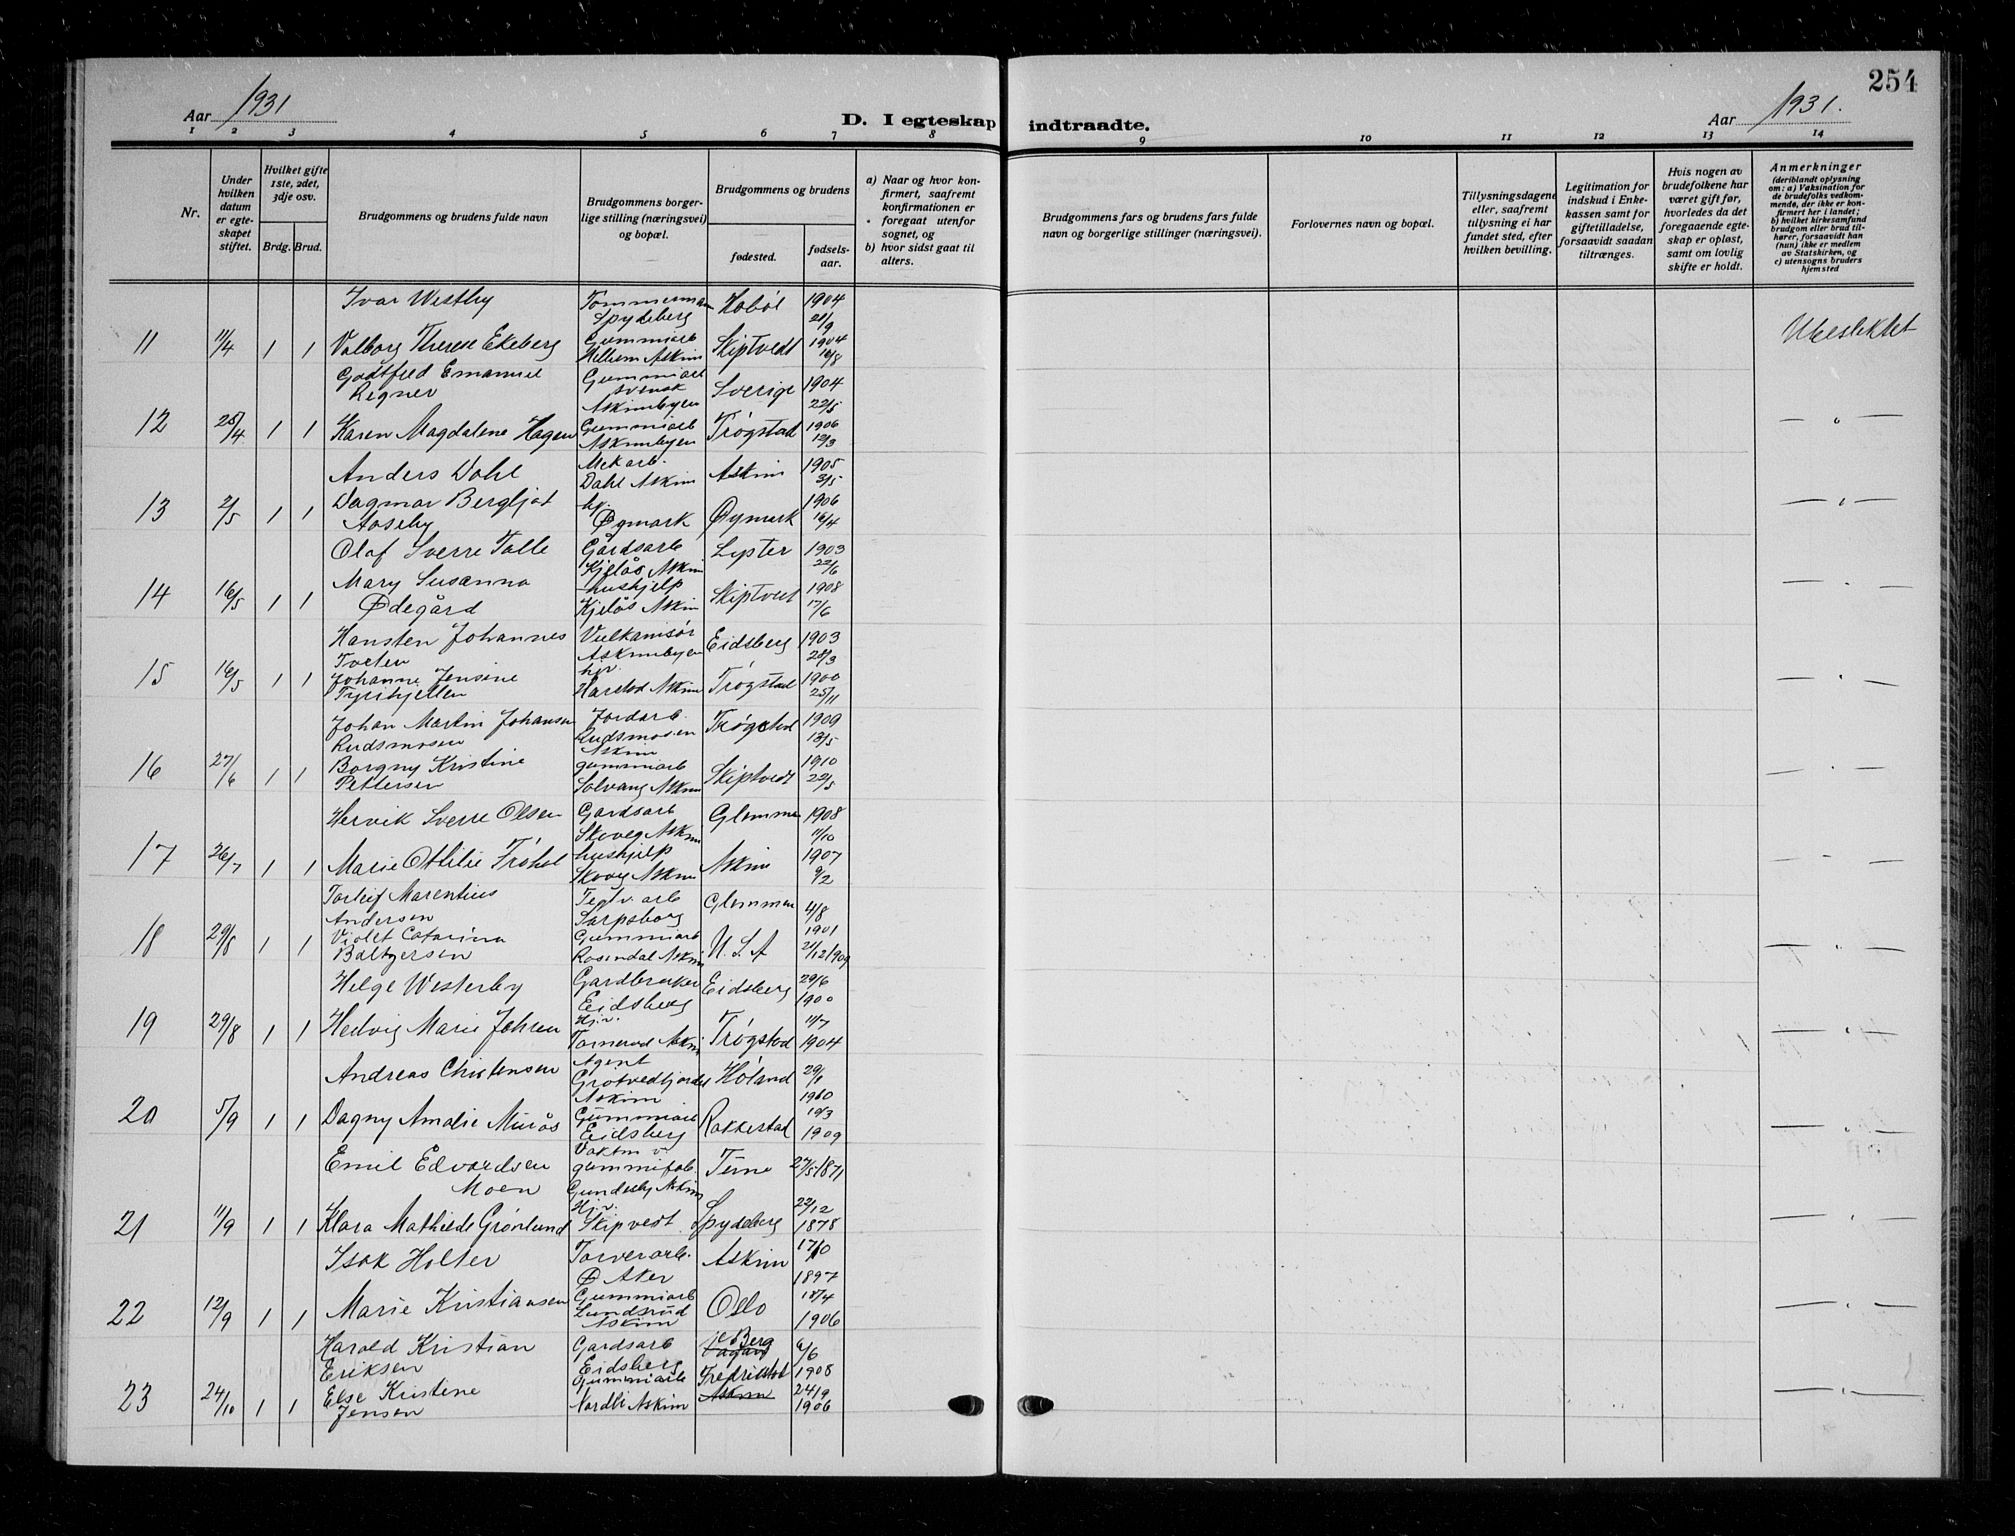 254
Aar 1931
D. I egteskap indtraadte.
Aar 1931.
1 2 3 4 5 6 7 8 9 10 11 12 13 14
Nr.
Under hvilken datum er egteskapet stiftet.
Hvilket gifte 1ste, 2det, 3dje osv.
Brdg. Brud.
Brudgommens og brudens fulde navn
Brudgommens borgerlige stilling (næringsvei) og bopæl.
Brudgommens og brudens
fødested.
fødselsaar.
a) Naar og hvor konfirmert, saafremt konfirmationen er foregaat utenfor sognet, og
b) hvor sidst gaat til alters.
Brudgommens fars og brudens fars fulde navn og borgerlige stillinger (næringsvei).
Forlovernes navn og bopæl.
Tillysningsdagene eller, saafremt tillysning ei har fundet sted, efter hvilken bevilling.
Legitimation for indskud i Enkekassen samt for giftetilladelse, forsaavidt saadan tiltrænges.
Hvis nogen av brudefolkene har været gift før, hvorledes da det foregaaende egteskap er opløst, samt om lovlig skifte er holdt.
Anmerkninger
(deriblandt oplysning om: a) Vaksination for de brudefolks vedkommende, der ikke er konfirmert her i landet; b) hvilket kirkesamfund brudgom eller brud tilhører, forsaavidt han (hun) ikke er medlem av Statskirken, og c) utensogns bruders hjemsted
Ivar Westby Tømmerman Spydeberg Hobøl 1904 21/9
11 11/4 1 1 Valborg Therese Ekeberg Gummiarb Askim Skiptvedt 1904 16/8 Ubeslektet
Godtfred Emanuel Legner Gummiarb svensk Askimbyen Sverige 1904 22/5
12 25/4 1 1 Karen Magdalene Hagen Gummiarb Askimbyen Trøgstad 1906 12/3 — " —
Anders Dahl Mek arb. Dahl Askim Askim 1905 3/5
13 2/5 1 1 Dagmar Bergljot Aaseby Øymark Øymark 1906 16/4 — " —
Olaf Sverre Talle Gårdsarb Kjelås Askim Lyster 1903 22/6
14 16/5 1 1 Mary Susanna Ødegård hushjelp Kjelås Askim Skiptvet 1908 17/6 — " —
Hansten Johannes Tveten Vulkanisør Askimbyen Eidsberg 1903 28/3
15 16/5 1 1 Johanne Jensine Tyrihjellen hjv. Harelad Askim Trøgstad 1900 25/11 — " —
Johan Martin Johansen Rudsmosen Jordarb. Rudsmosen Askim Trøgstad 1909 13/5
16 27/6 1 1 Borgny Kristine Pettersen gummiarb Solvang Askim Skiptvedt 1910 22/5 — " —
Hervik Sverre Olsen Gardsarb Skoveg Askim Glemmen 1908 11/10
17 26/7 1 1 Marie Ottilie Trøhol hushjelp Askim Askim 1907 9/2 — " —
Torleif Marentius Andersen Teglv. arb Sarpsborg Glemmen 4/8 1901
18 29/8 1 1 Violet Catarina Baltzersen Gummiarb Rosendal Askim U.S.A 21/12 1909 — " —
Helge Westerby Gardbruker Eidsberg Eidsberg 29/6 1900
19 29/8 1 1 Hedvig Marie Johren Hj.v. Tornerud Askim Trøgstad 11/7 1904 — " —
Andreas Christensen Agent Grøtvedtfjordet Askim Høland 29/1 1900
20 5/9 1 1 Dagny Amalie Murås Gummiarb Eidsberg Rakkestad 10/3 1909 — " —
Emil Edvardsen Moen Vaktm v gummifab. Gundsby Askim 27/5 1871
21 11/9 1 1 Klara Mathilde Grønlund Hj.v. Skipvedt Spydeberg 22/12 1878 — " —
Isak Holter Torverarb. Ø Aker Askim 17/10 1897
22 12/9 1 1 Marie Kristiansen Gummiarb Lundsrud Askim Oslo 18/4 1906 — " —
Harald Kristian Eriksen Gardsarb Eidsberg Berg 6/6 1908
23 24/10 1 1 Else Kristine Jensen Gummiarb Nordli Askim Fredrikstad Askim 24/9 1906 — " —